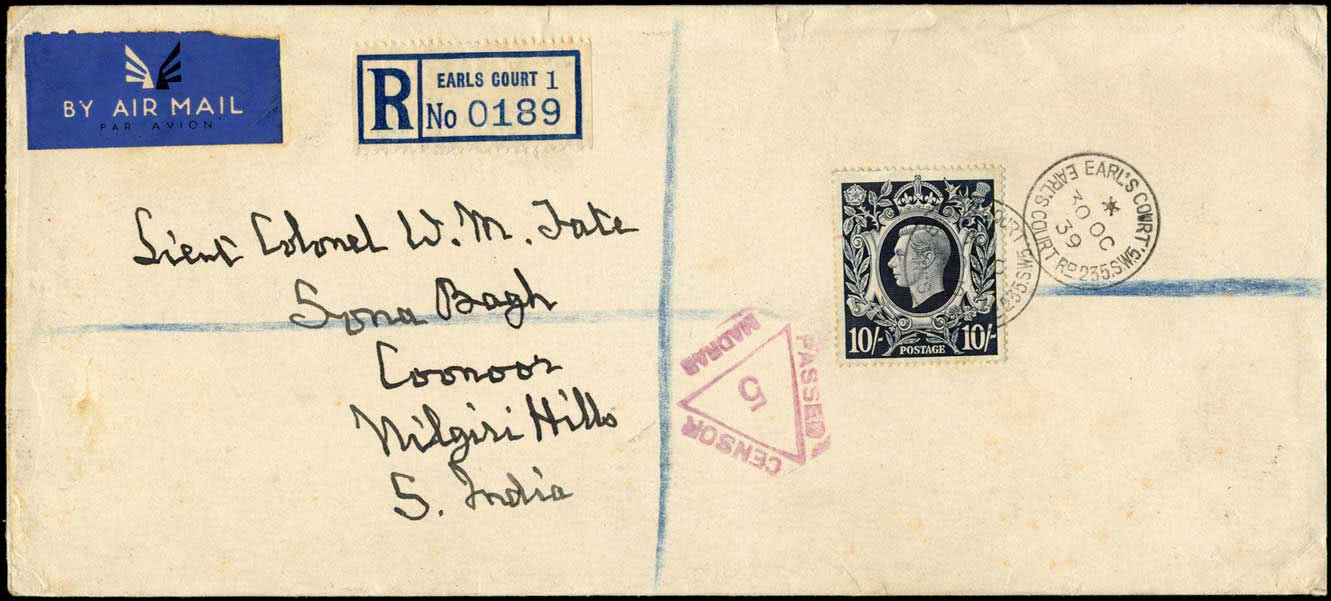 BY AIR MAIL
PAR AVION
R
EARLS COURT 1
No 0189
Lieut Colonel W. M. Tate
Sona Bagh
Coonoor
Nilgiri Hills
S. India
10/- POSTAGE 10/-
EARL'S COURT RD 235.S.W.5.
EARL'S COURT
*
30 OC
39
PASSED
CENSOR
MADRAS
5